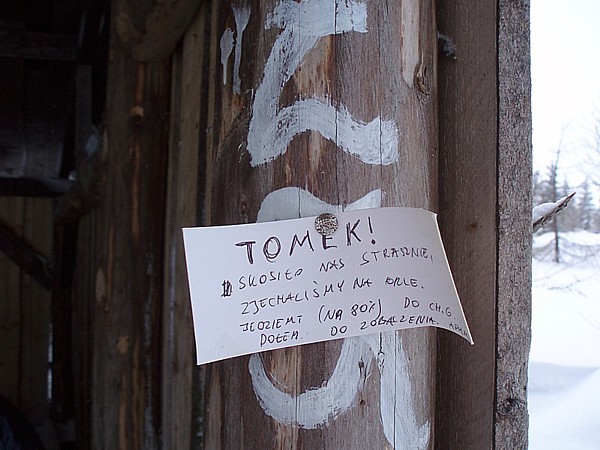 TOMEK!
SKOSIŁO NAS STRASZNIE,
ZJECHALIŚMY NA ORLE.
JEDZIEMY (NA 80%) DO CH.G
DOŁEM. DO ZOBACZENIA.